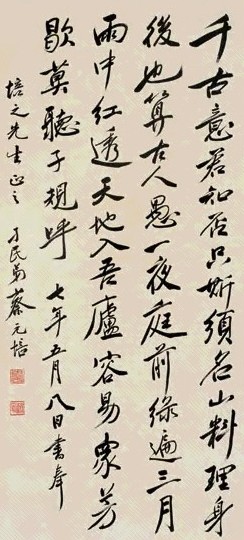 千古意君知否只斯須名山料理身
後也算古人愚一夜庭前綠遍三月
雨中紅透天地入吾廬容易衆芳
歇莫聽子規呼 七年五月八日書奉
培之先生正之 孑民弟蔡元培